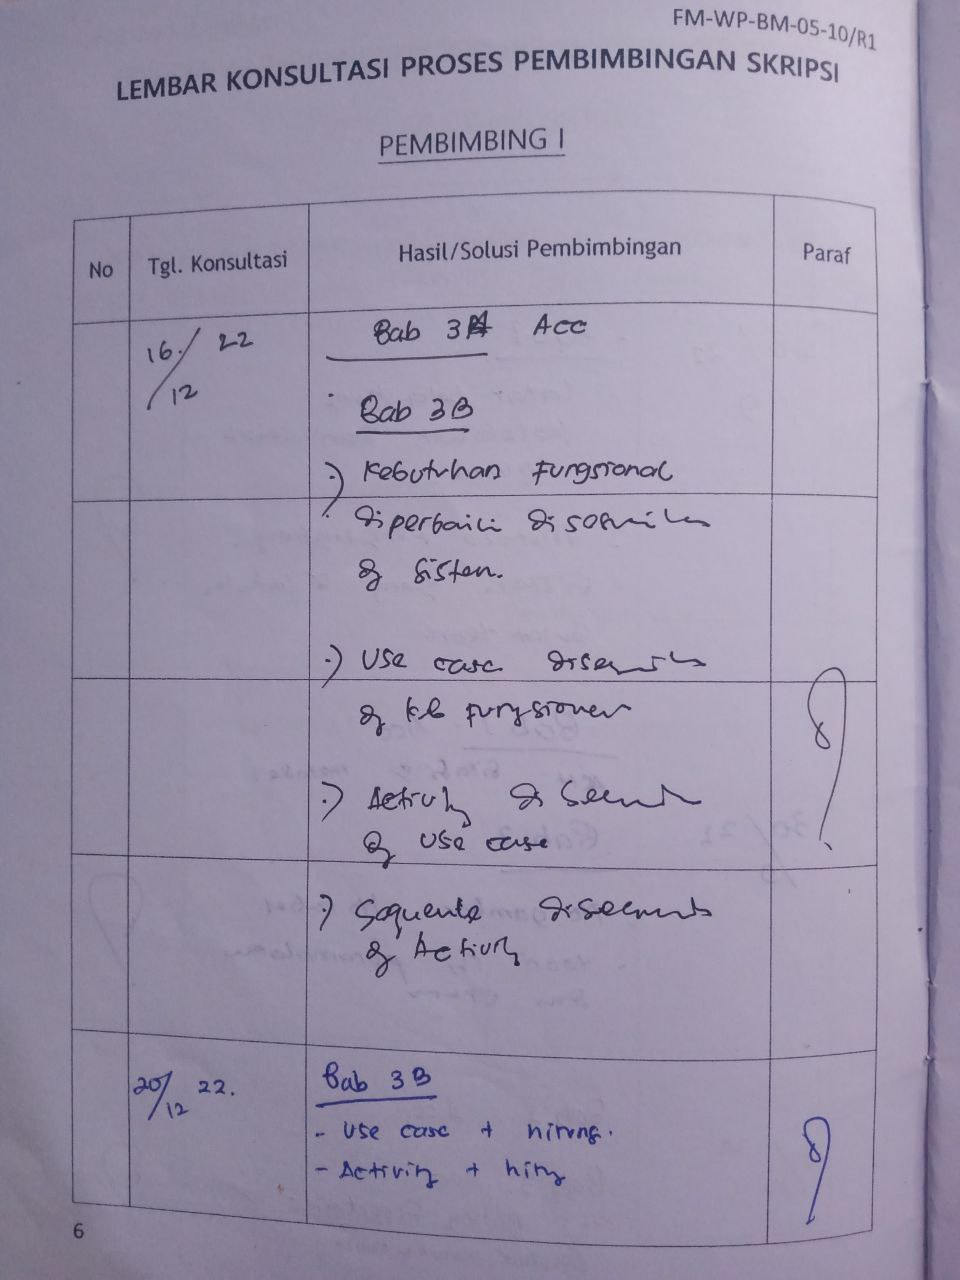 FM-WP-BM-05-10/R1
LEMBAR KONSULTASI PROSES PEMBIMBINGAN SKRIPSI
PEMBIMBING I
No Tgl. Konsultasi Hasil/Solusi Pembimbingan Paraf
16/12 22 Bab 3A Acc
Bab 3B
:) Kebutuhan Fungsional
diperbaiki disesuaikan
dg sistem.
:) Use case disesuaikan
dg keb fungsional
:) Activity disesuaikan
dg use case
:) Sequence disesuaikan
dg Activity
20/12 22. Bab 3B
- Use case +
- Activity +
6